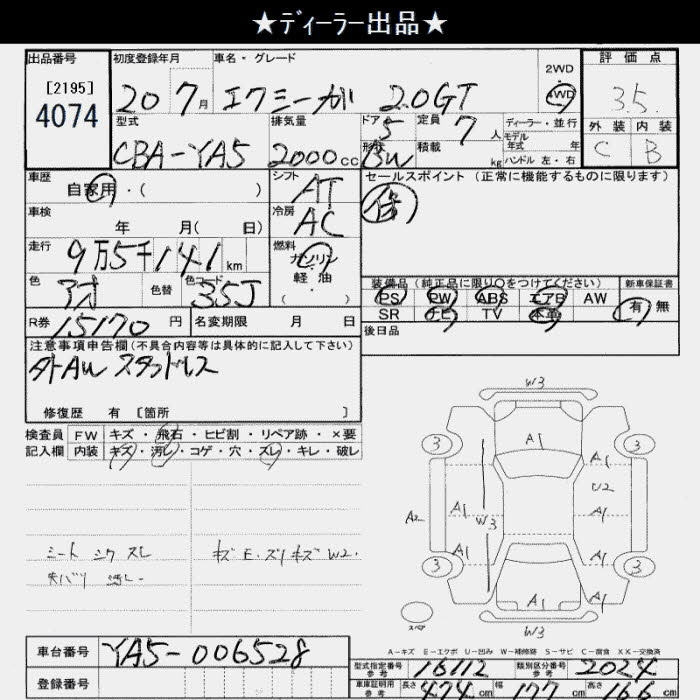 ★ディーラー出品★
出品番号 初度登録年月 車名・グレード 2WD 評価点
[2195]
4074 20 7月 エクシーガ 2.0GT 4WD 3.5
型式 排気量 ドア 定員 ディーラー・並行 外装 内装
5 7人 モデル年式 年
CBA-YA5 2000cc 形状 BW 積載 kg ハンドル 左・右 C B
車歴 自家用・( ) シフト AT セールスポイント (正常に機能するものに限ります)
車検 年 月( 日) 冷房 AC
走行 9万5千141km 燃料 ガソリン・軽油・( )
色 色替 色コード 35J 装備品 (純正品に限り○をつけてください) 新車保証書
PS PW ABS エアB AW 有 無
R券 15170円 名変期限 月 日 SR ナビ TV 本革
後日品
注意事項申告欄(不具合内容等は具体的に記入して下さい)
外AW スタッドレス
修復歴 有 [箇所 ]
検査員 FW キズ・飛石・ヒビ割・リペア跡・×要
記入欄 内装 キズ・汚レ・コゲ・穴・スレ・キレ・破レ
シート シワ スレ
キズE・ズリキズ W2.
W3
3 A1 3
A1
U2
A2 A1 W3 A1
A1 A1
3 3
A1 A1
スペア W3
A-キズ E-エクボ U-凹み W-補修跡 S-サビ C-腐食 XX-交換済
車台番号 YA5-006528
型式指定番号 参考 16112 類別区分番号 参考 2024
登録番号
車庫証明用 参考 長さ 474cm 幅 177cm 高さ 166cm